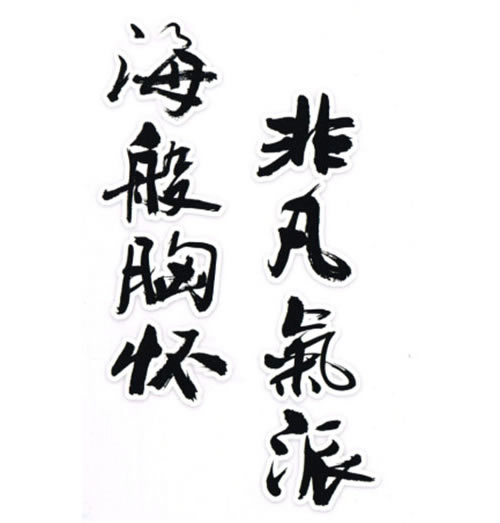 海般胸怀
非凡氣派